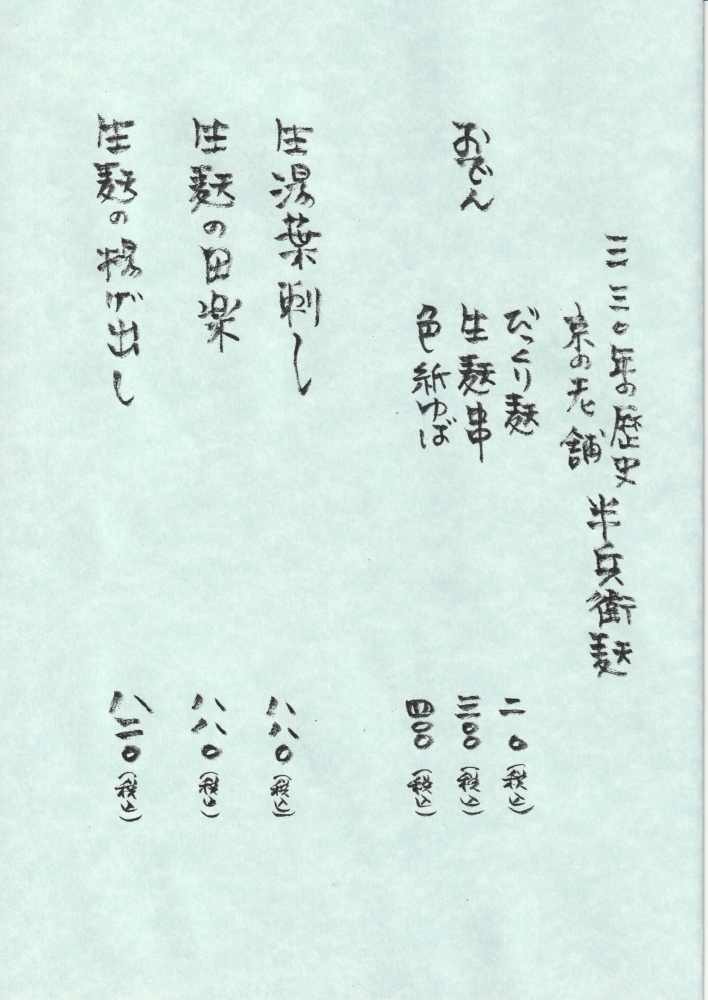 三三〇年の歴史
京の老舗
半兵衛麸
おでん
びっくり麸 二〇(税込)
生麸串 三〇〇(税込)
色紙ゆば 四〇〇(税込)
生湯葉刺し 八八〇(税込)
生麸の田楽 八八〇(税込)
生麸の揚げ出し 八二〇(税込)